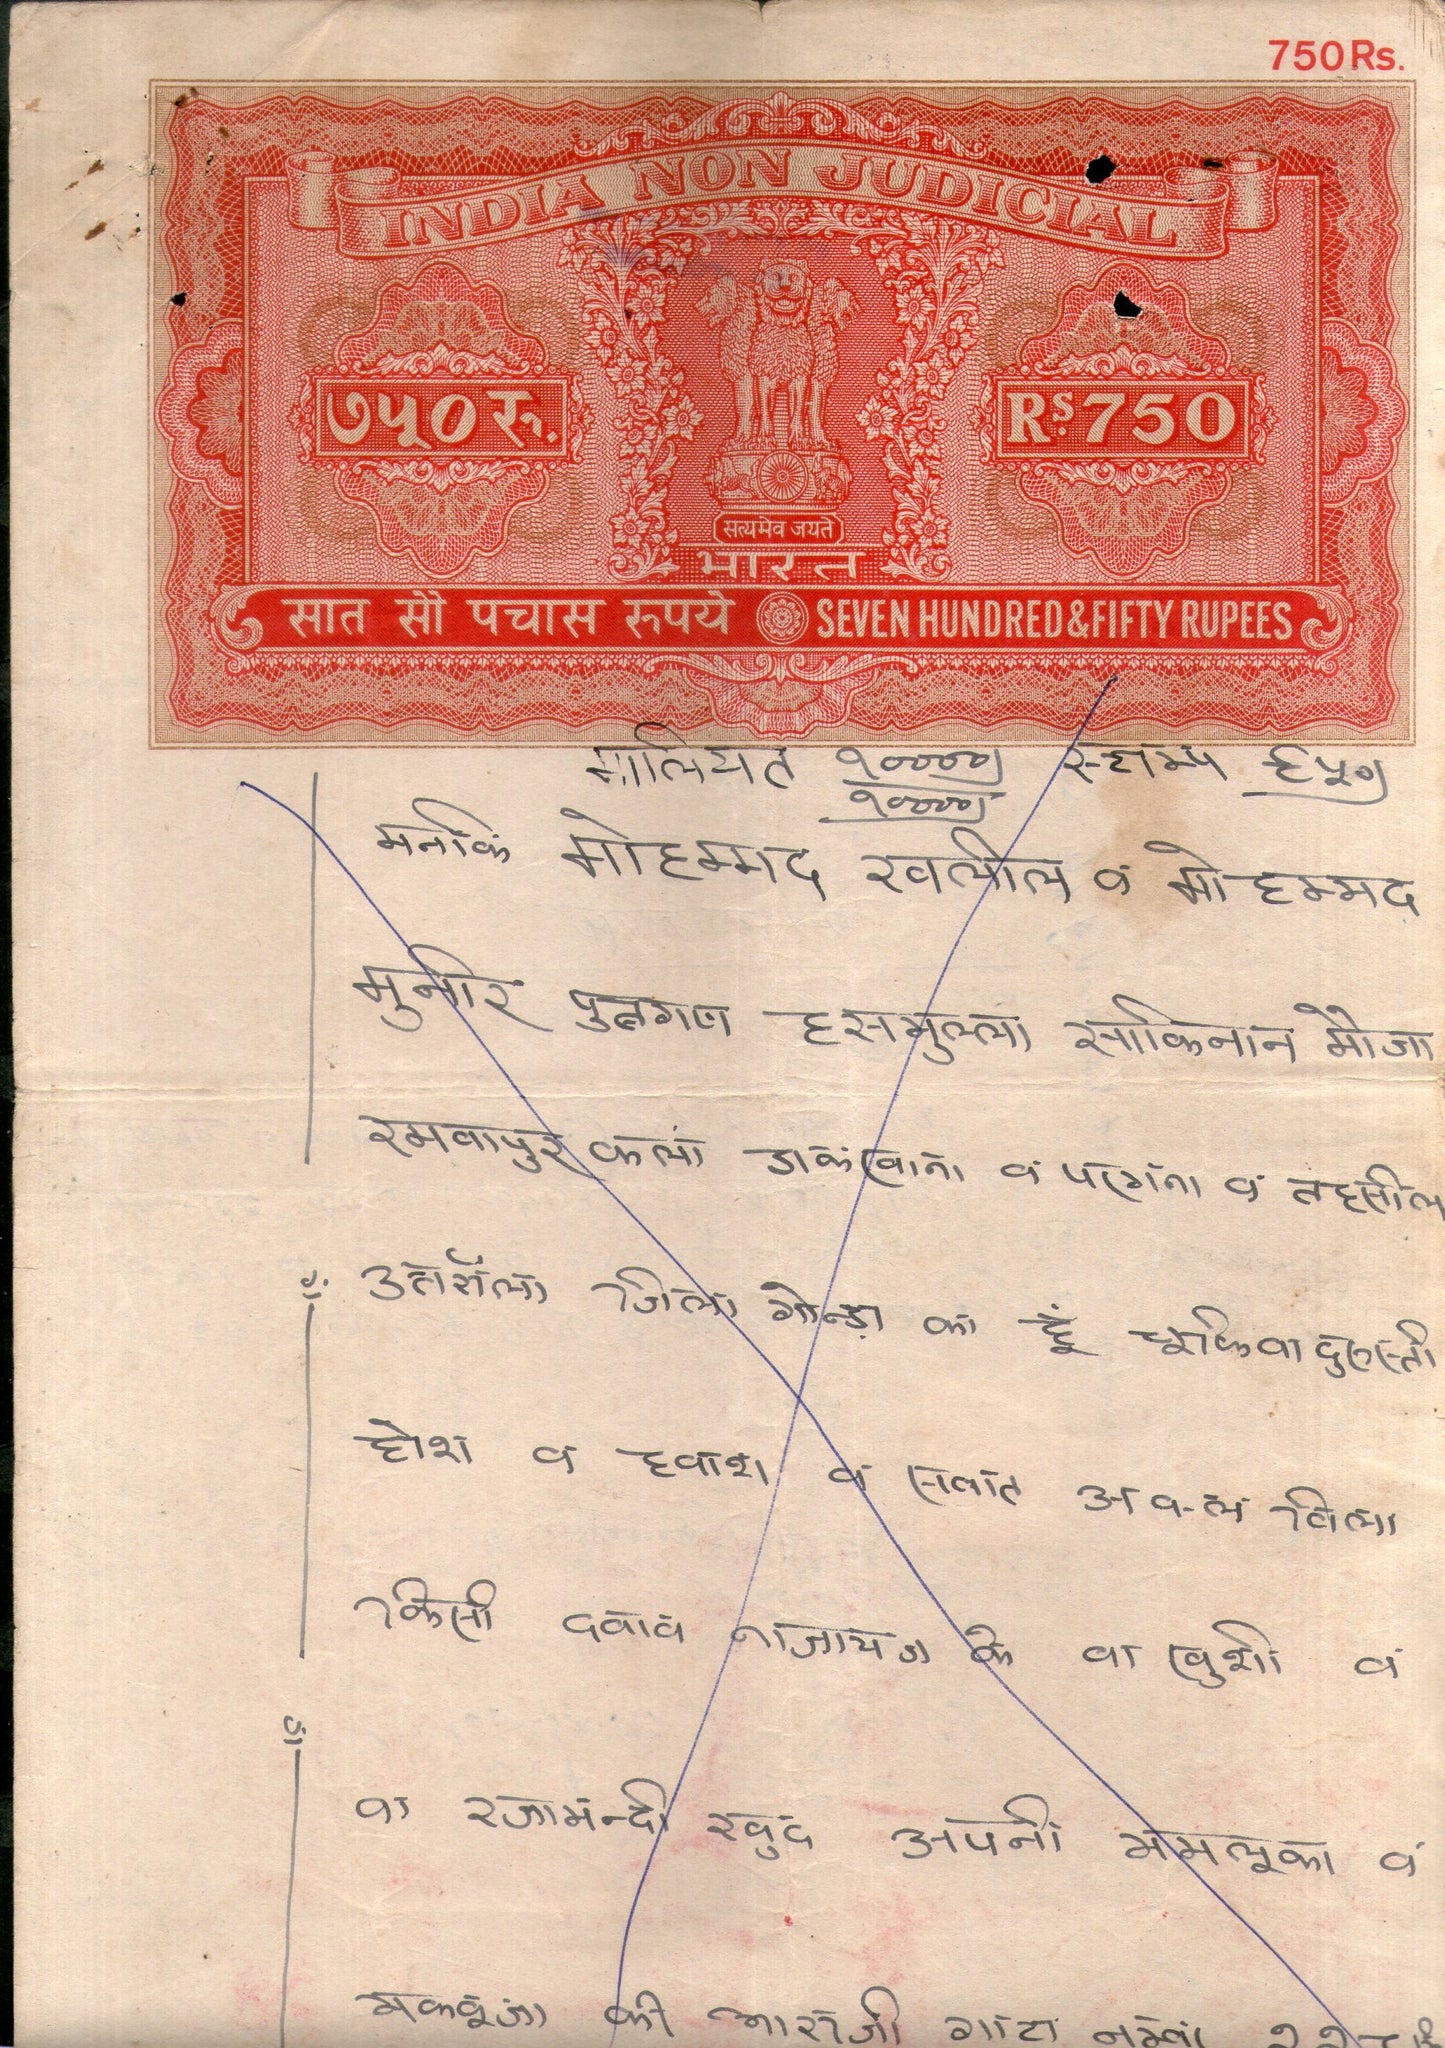 750Rs.
INDIA NON JUDICIAL
७५०रु.
Rs.750
सत्यमेव जयते
भारत
सात सौ पचास रुपये SEVEN HUNDRED & FIFTY RUPEES
मालियत १०००० स्टाम्प
१००००
मनकि मोहम्मद खलील व मोहम्मद
मुनीर पुत्रगण हसमुल्ला साकिनान मौजा
रमवापुर कला डाकखाना व परगना व तहसील
उतरौला जिला गोन्डा का हूँ चूकिवा दुरुस्ती
होश व हवाश व सवात अक्ल विला
किसी दवाव नाजायज के वा खुशी व
वा रजामन्दी खुद अपनी ममलूका व
मकवूजा की आराजी गाटा नम्वर